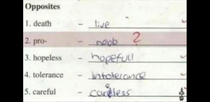 Opposites
1. death live
2. pro- noob ?
3. hopeless hopefull
4. tolerance intolerance
5. careful careless